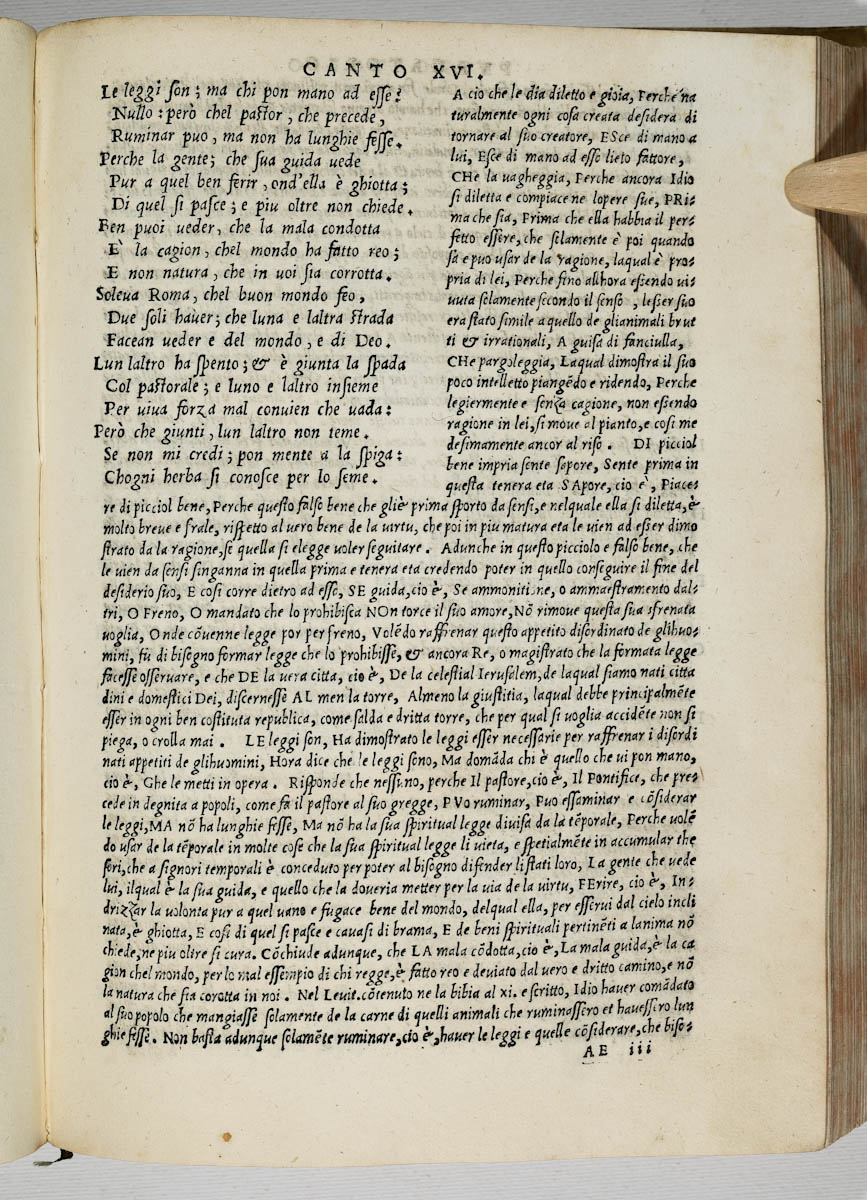 CANTO XVI.
Le leggi son; ma chi pon mano ad esse?
Nullo: però chel pastor, che precede,
Ruminar puo, ma non ha lunghie fesse.
Perche la gente; che sua guida uede
Pur a quel ben ferir, ond'ella è ghiotta;
Di quel si pasce; e piu oltre non chiede.
Ben puoi ueder, che la mala condotta
E` la cagion, chel mondo ha fatto reo;
E non natura, che in uoi sia corrotta.
Soleua Roma, chel buon mondo feo,
Due soli hauer; che luna e laltra strada
Facean ueder e del mondo, e di Deo.
Lun laltro ha spento; & è giunta la spada
Col pastorale; e luno e laltro insieme
Per uiua forza mal conuien che uada:
Però che giunti, lun laltro non teme.
Se non mi credi; pon mente a la spiga:
Chogni herba si conosce per lo seme.
A cio che le dia diletto e gioia, Perche na
turalmente ogni cosa creata desidera di
tornare al suo creatore, ESce di mano a
lui, Esce di mano ad esso lieto fattore,
CHe la uagheggia, Perche ancora Idio
si diletta e compiace ne lopere sue, PRi=
ma che sia, Prima che ella habbia il per=
fetto essere, che solamente è poi quando
sa e puo usar de la ragione, laqual è pro=
pria di lei, Perche fino allhora essendo ui=
uuta solamente secondo il senso, lesser suo
era stato simile a quello de glianimali brut
ti & irrationali, A guisa di fanciulla,
CHe pargoleggia, Laqual dimostra il suo
poco intelletto piangẽdo e ridendo, Perche
legiermente e senza cagione, non essendo
ragione in lei, si moue al pianto, e cosi me
desimamente ancor al riso. DI picciol
bene impria sente sapore, Sente prima in
questa tenera eta SApore, cio è, Piace=
re di picciol bene, Perche questo falso bene che gliè prima sporto da sensi, e nelquale ella si diletta, è
molto breue e frale, rispetto al uero bene de la uirtu, che poi in piu matura eta le uien ad esser dimo
strato da la ragione, se quella si elegge uoler seguitare. Adunche in questo picciolo e falso bene, che
le uien da sensi singanna in quella prima e tenera eta credendo poter in quello conseguire il fine del
desiderio suo, E cosi corre dietro ad esso, SE guida, cio è, Se ammonitione, o ammaestramento dal=
tri, O Freno, O mandato che lo prohibisca NOn torce il suo amore, Nõ rimoue questa sua sfrenata
uoglia, Onde cõuenne legge por per freno, Volẽdo raffrenar questo appetito disordinato de glihuo=
mini, fu di bisogno formar legge che lo prohibisse, & ancora Re, o magistrato che la formata legge
facesse osseruare, e che DE la uera citta, cio è, De la celestial Ierusalem, de laqual siamo nati citta
dini e domestici Dei, discernesse AL men la torre, Almeno la giustitia, laqual debbe principalmẽte
esser in ogni ben costituta republica, come salda e dritta torre, che per qual si uoglia accidẽte non si
piega, o crolla mai. LE leggi son, Ha dimostrato le leggi esser necessarie per raffrenar i disordi
nati appetiti de glihuomini, Hora dice che le leggi sono, Ma domãda chi è quello che ui pon mano,
cio è, Che le metti in opera. Risponde che nessuno, perche Il pastore, cio è, Il Pontifice, che pre=
cede in degnita a popoli, come fa il pastore al suo gregge, PVo ruminar, Puo essaminar e cõsiderar
le leggi, MA nõ ha lunghie fesse, Ma nõ ha la sua spiritual legge diuisa da la tẽporale, Perche uolẽ
do usar de la tẽporale in molte cose che la sua spiritual legge li uieta, e spetialmẽte in accumular the
sori, che a signori temporali è conceduto per poter al bisogno difender li stati loro, La gente che uede
lui, ilqual è la sua guida, e quello che la doueria metter per la uia de la uirtu, FErire, cio è, In=
drizzar la uolonta pur a quel uano e fugace bene del mondo, delqual ella, per esserui dal cielo incli
nata, è ghiotta, E cosi di quel si pasce e cauasi di brama, E de beni spirituali pertinẽti a lanima nõ
chiede, ne piu oltre si cura. Cõchiude adunque, che LA mala cõdotta, cio è, La mala guida, è la ca
gion chel mondo, per lo mal essempio di chi regge, è fatto reo e deuiato dal uero e dritto camino, e nõ
la natura che sia corotta in noi. Nel Leuit. cõtenuto ne la bibia al xi. e scritto, Idio hauer comãdato
al suo popolo che mangiasse solamente de la carne di quelli animali che ruminassero et hauessero lun
ghie fesse. Non basta adunque solamẽte ruminare, cio è, hauer le leggi e quelle cõsiderare, che biso=
AE iii